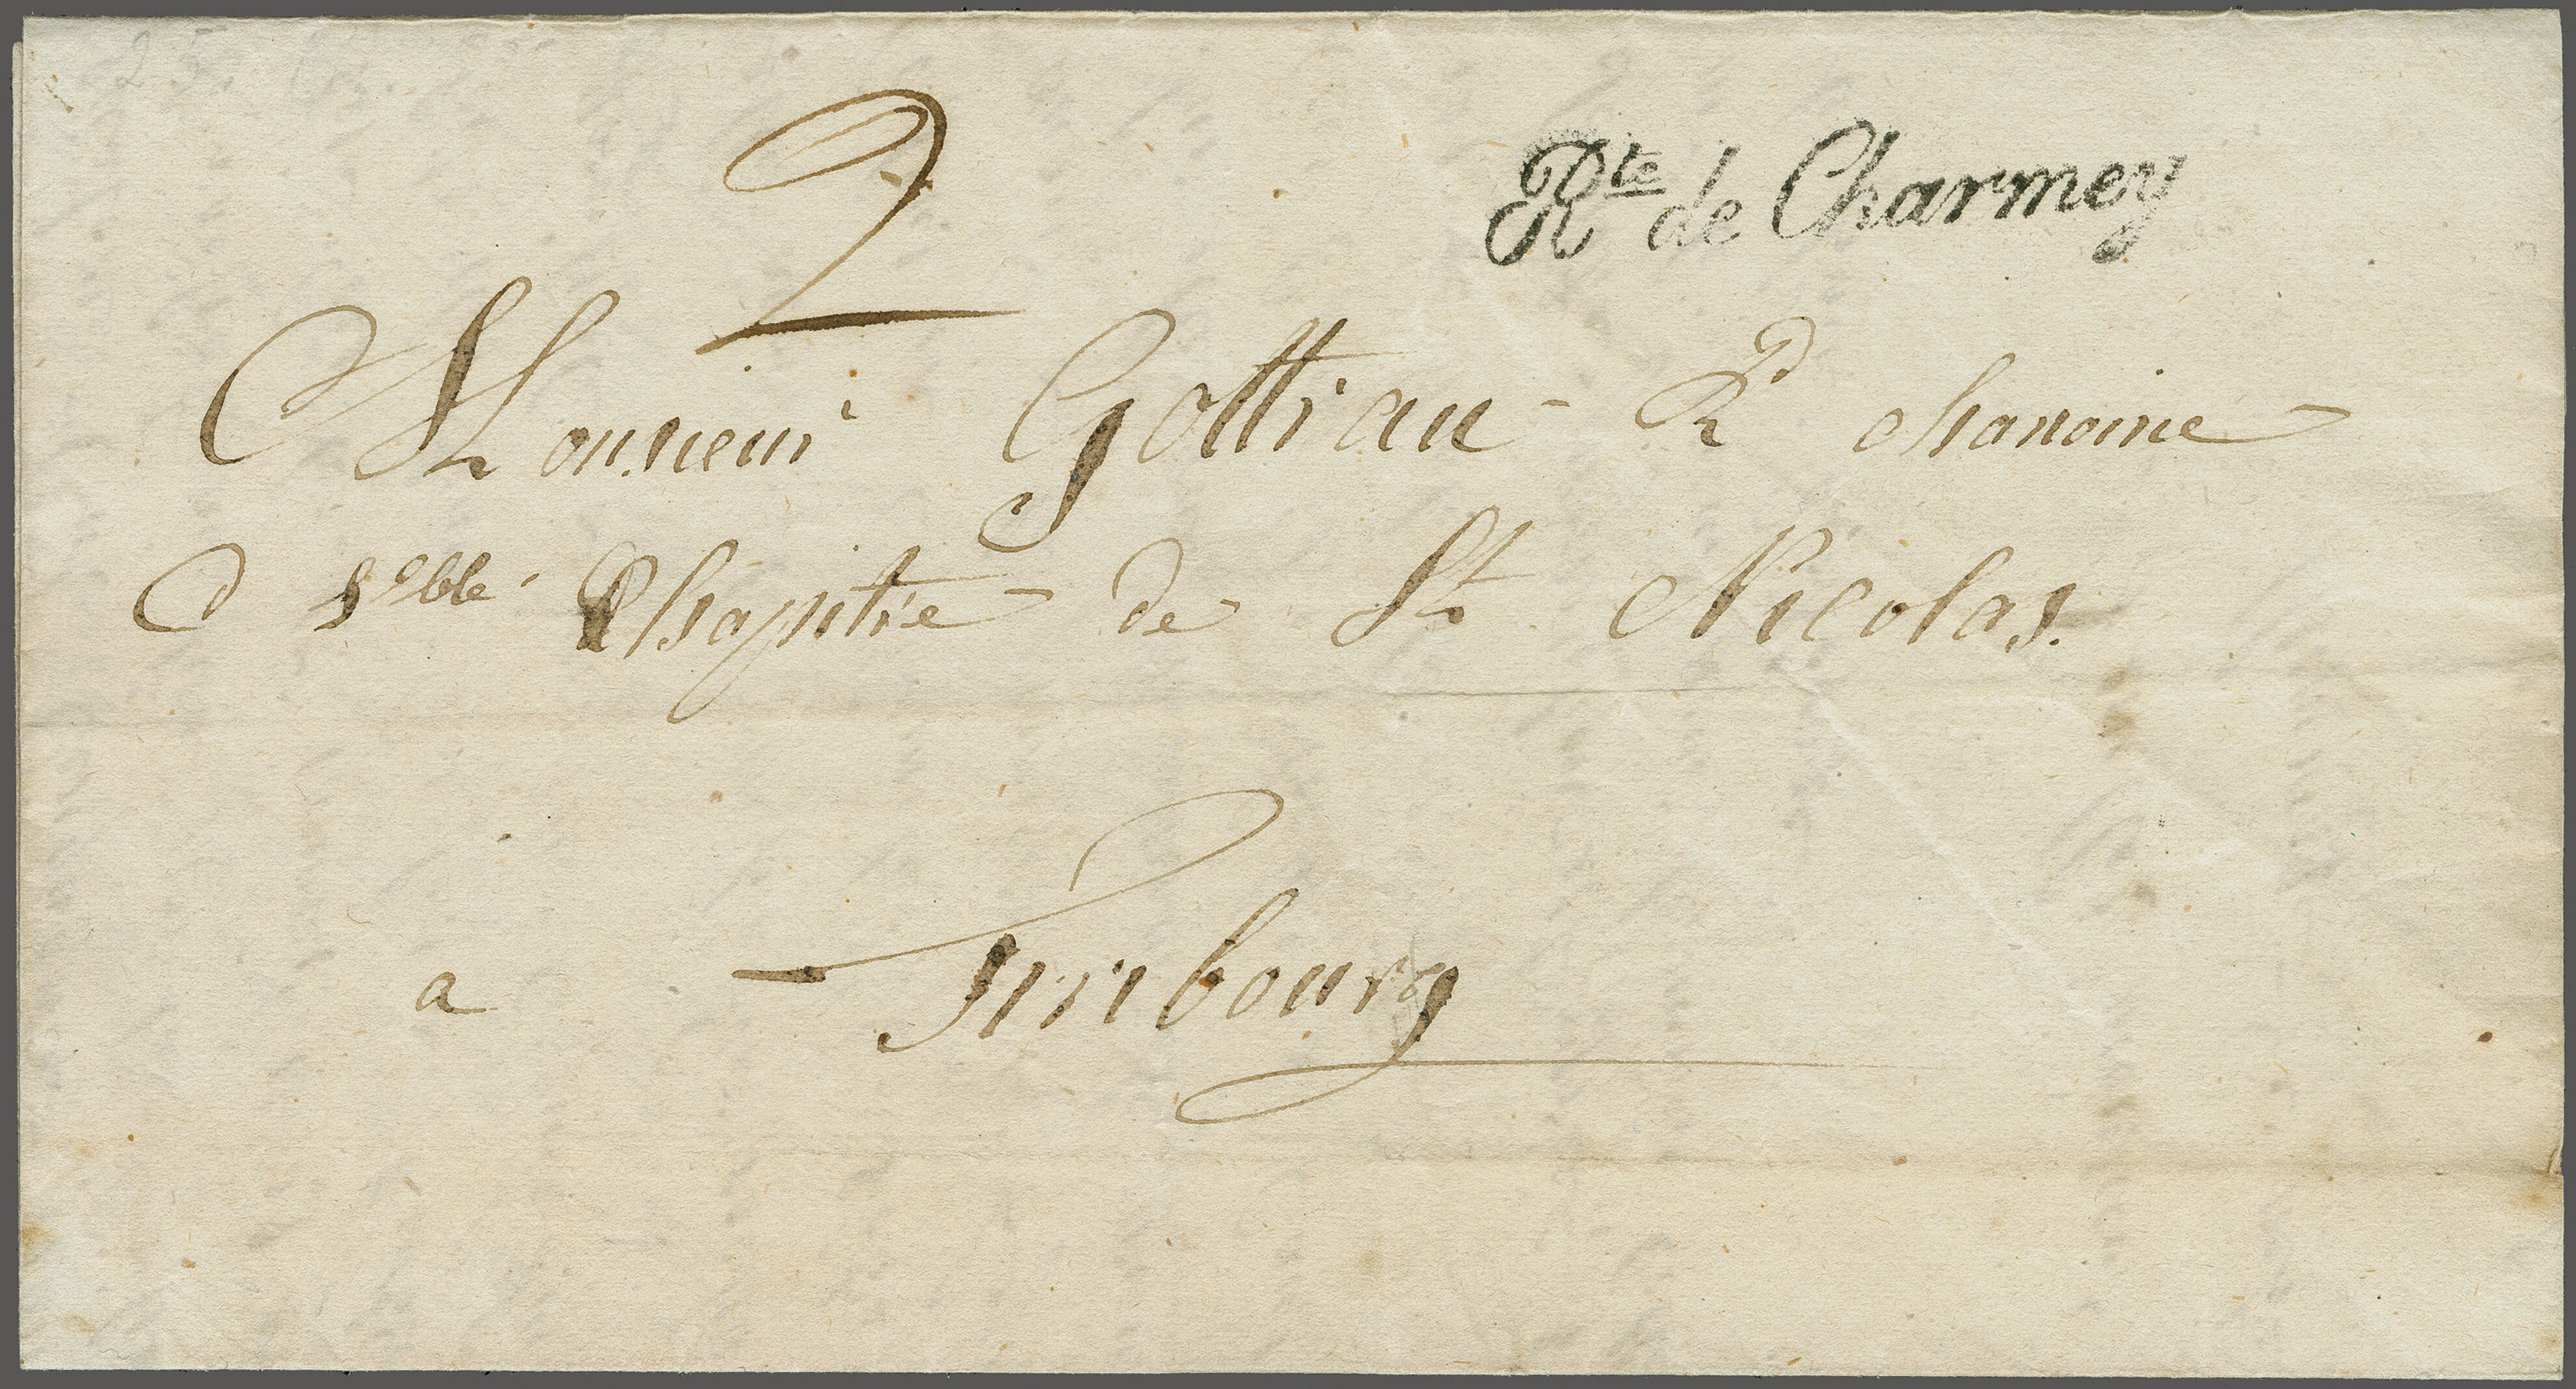 25.
2
Rte de Charmey
Monsieur Gottrau Rd chanoine
d Vble Chapitre de St Nicolas.
a Fribourg